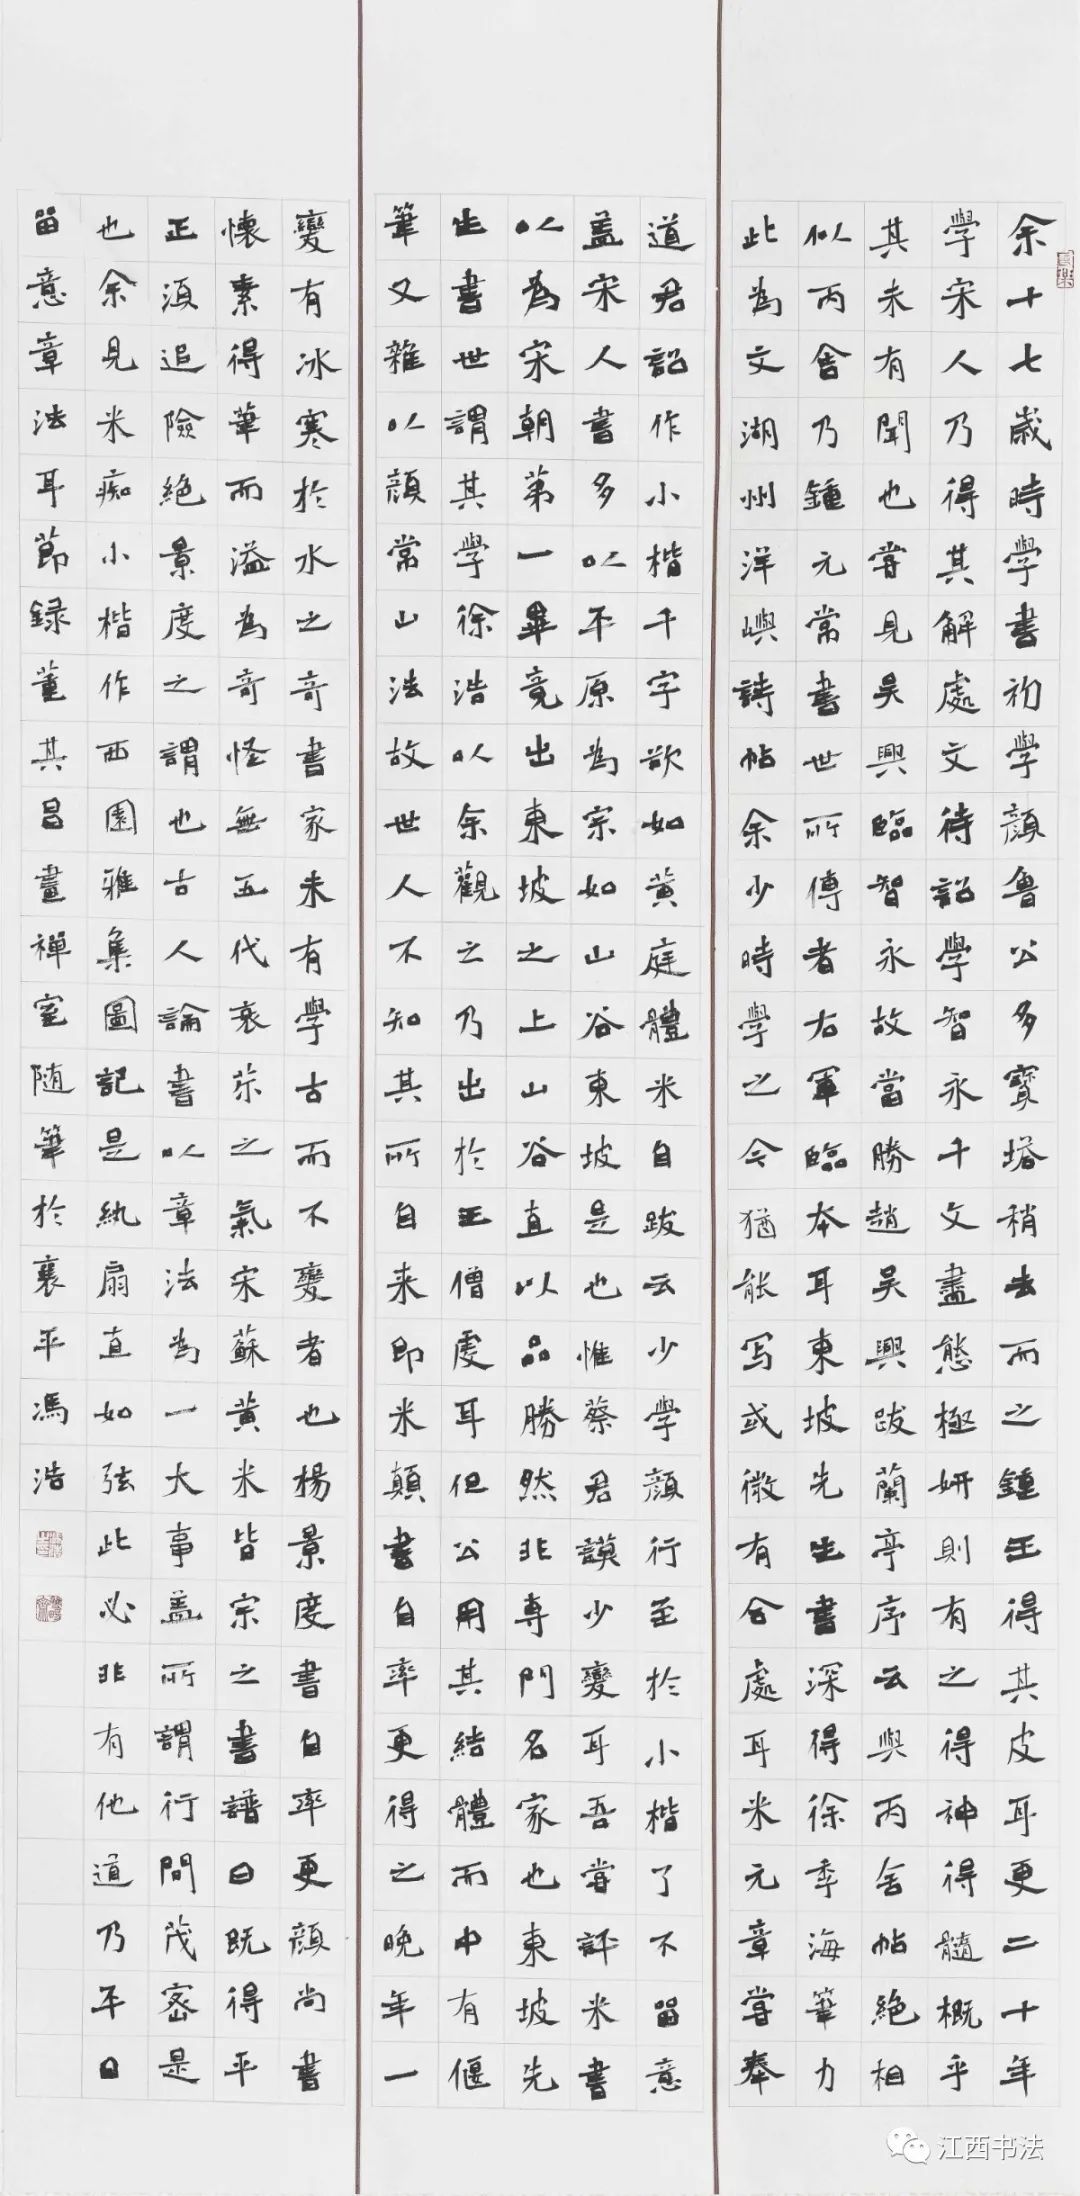 余十七歲時學書初學顏魯公多寶塔稍去而之鍾王得其皮耳更二十年
學宋人乃得其解處文待詔學智永千文盡態極妍則有之得神得髓概乎
其未有聞也嘗見吴興臨智永故當勝趙吴興跋蘭亭序云與丙舍帖絶相
似丙舍乃鍾元常書世所傳者右軍臨本耳東坡先生書深得徐季海筆力
此為文湖州洋嶼詩帖余少時學之今猶能写或微有合處耳米元章嘗奉
道君詔作小楷千字欲如黄庭體米自跋云少學顔行至於小楷了不留意
盖宋人書多以平原為宗如山谷東坡是也惟蔡君謨少變耳吾嘗評米書
以為宋朝第一畢竟出東坡之上山谷直以品勝然非專門名家也東坡先
生書世謂其學徐浩以余觀之乃出於王僧虔耳但公用其結體而中有偃
筆又雜以顔常山法故世人不知其所自来即米顛書自率更得之晚年一
變有冰寒於水之奇書家未有學古而不變者也楊景度書自率更顔尚書
懷素得筆而溢為奇怪無五代衰苶之氣宋蘇黄米皆宗之書譜曰既得平
正須追險絶景度之謂也古人論書以章法為一大事盖所謂行間茂密是
也余見米痴小楷作西園雅集圖記是紈扇直如弦此必非有他道乃平日
留意章法耳節録董其昌畫禪室随筆於襄平馮浩
江西书法